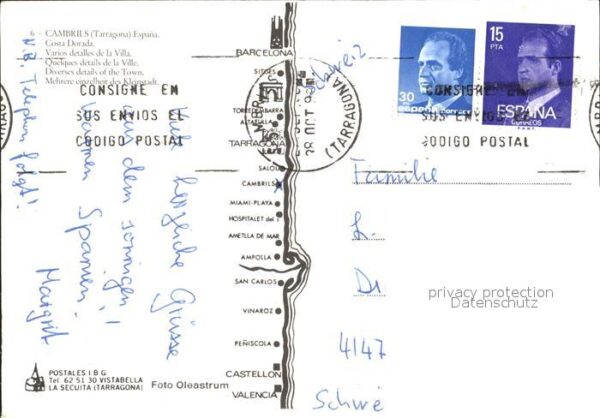 6 - CAMBRILS (Tarragona) España.
Costa Dorada.
Varios detalles de la Villa.
Quelques détails de la Ville.
Diverses details of the Town.
Mehrere einzelheit des Kleinstadt.
CONSIGNE EN
SUS ENVIOS EL
CODIGO POSTAL
28 OCT 93
(TARRAGONA)
30
ESPAÑA
15
PTA
ESPAÑA
CORREOS
CONSIGNE EN
SUS ENVIOS EL
CODIGO POSTAL
N.B. Telephon folgt!
Viele herzliche Grüsse
aus dem sonnigen,
warmen Spanien!
Margrit
BARCELONA
SITGES
TORREDEMBARRA
ALTAFULLA
TARRAGONA
SALOU
CAMBRILS
MIAMI-PLAYA
HOSPITALET del I.
AMETLLA DE MAR
AMPOLLA
SAN CARLOS
VINAROZ
PEÑISCOLA
CASTELLON
VALENCIA
Familie
4147
privacy protection
Datenschutz
POSTALES I.B.G.
Tel. 62 51 30 VISTABELLA
LA SECUITA (TARRAGONA)
Foto Oleastrum